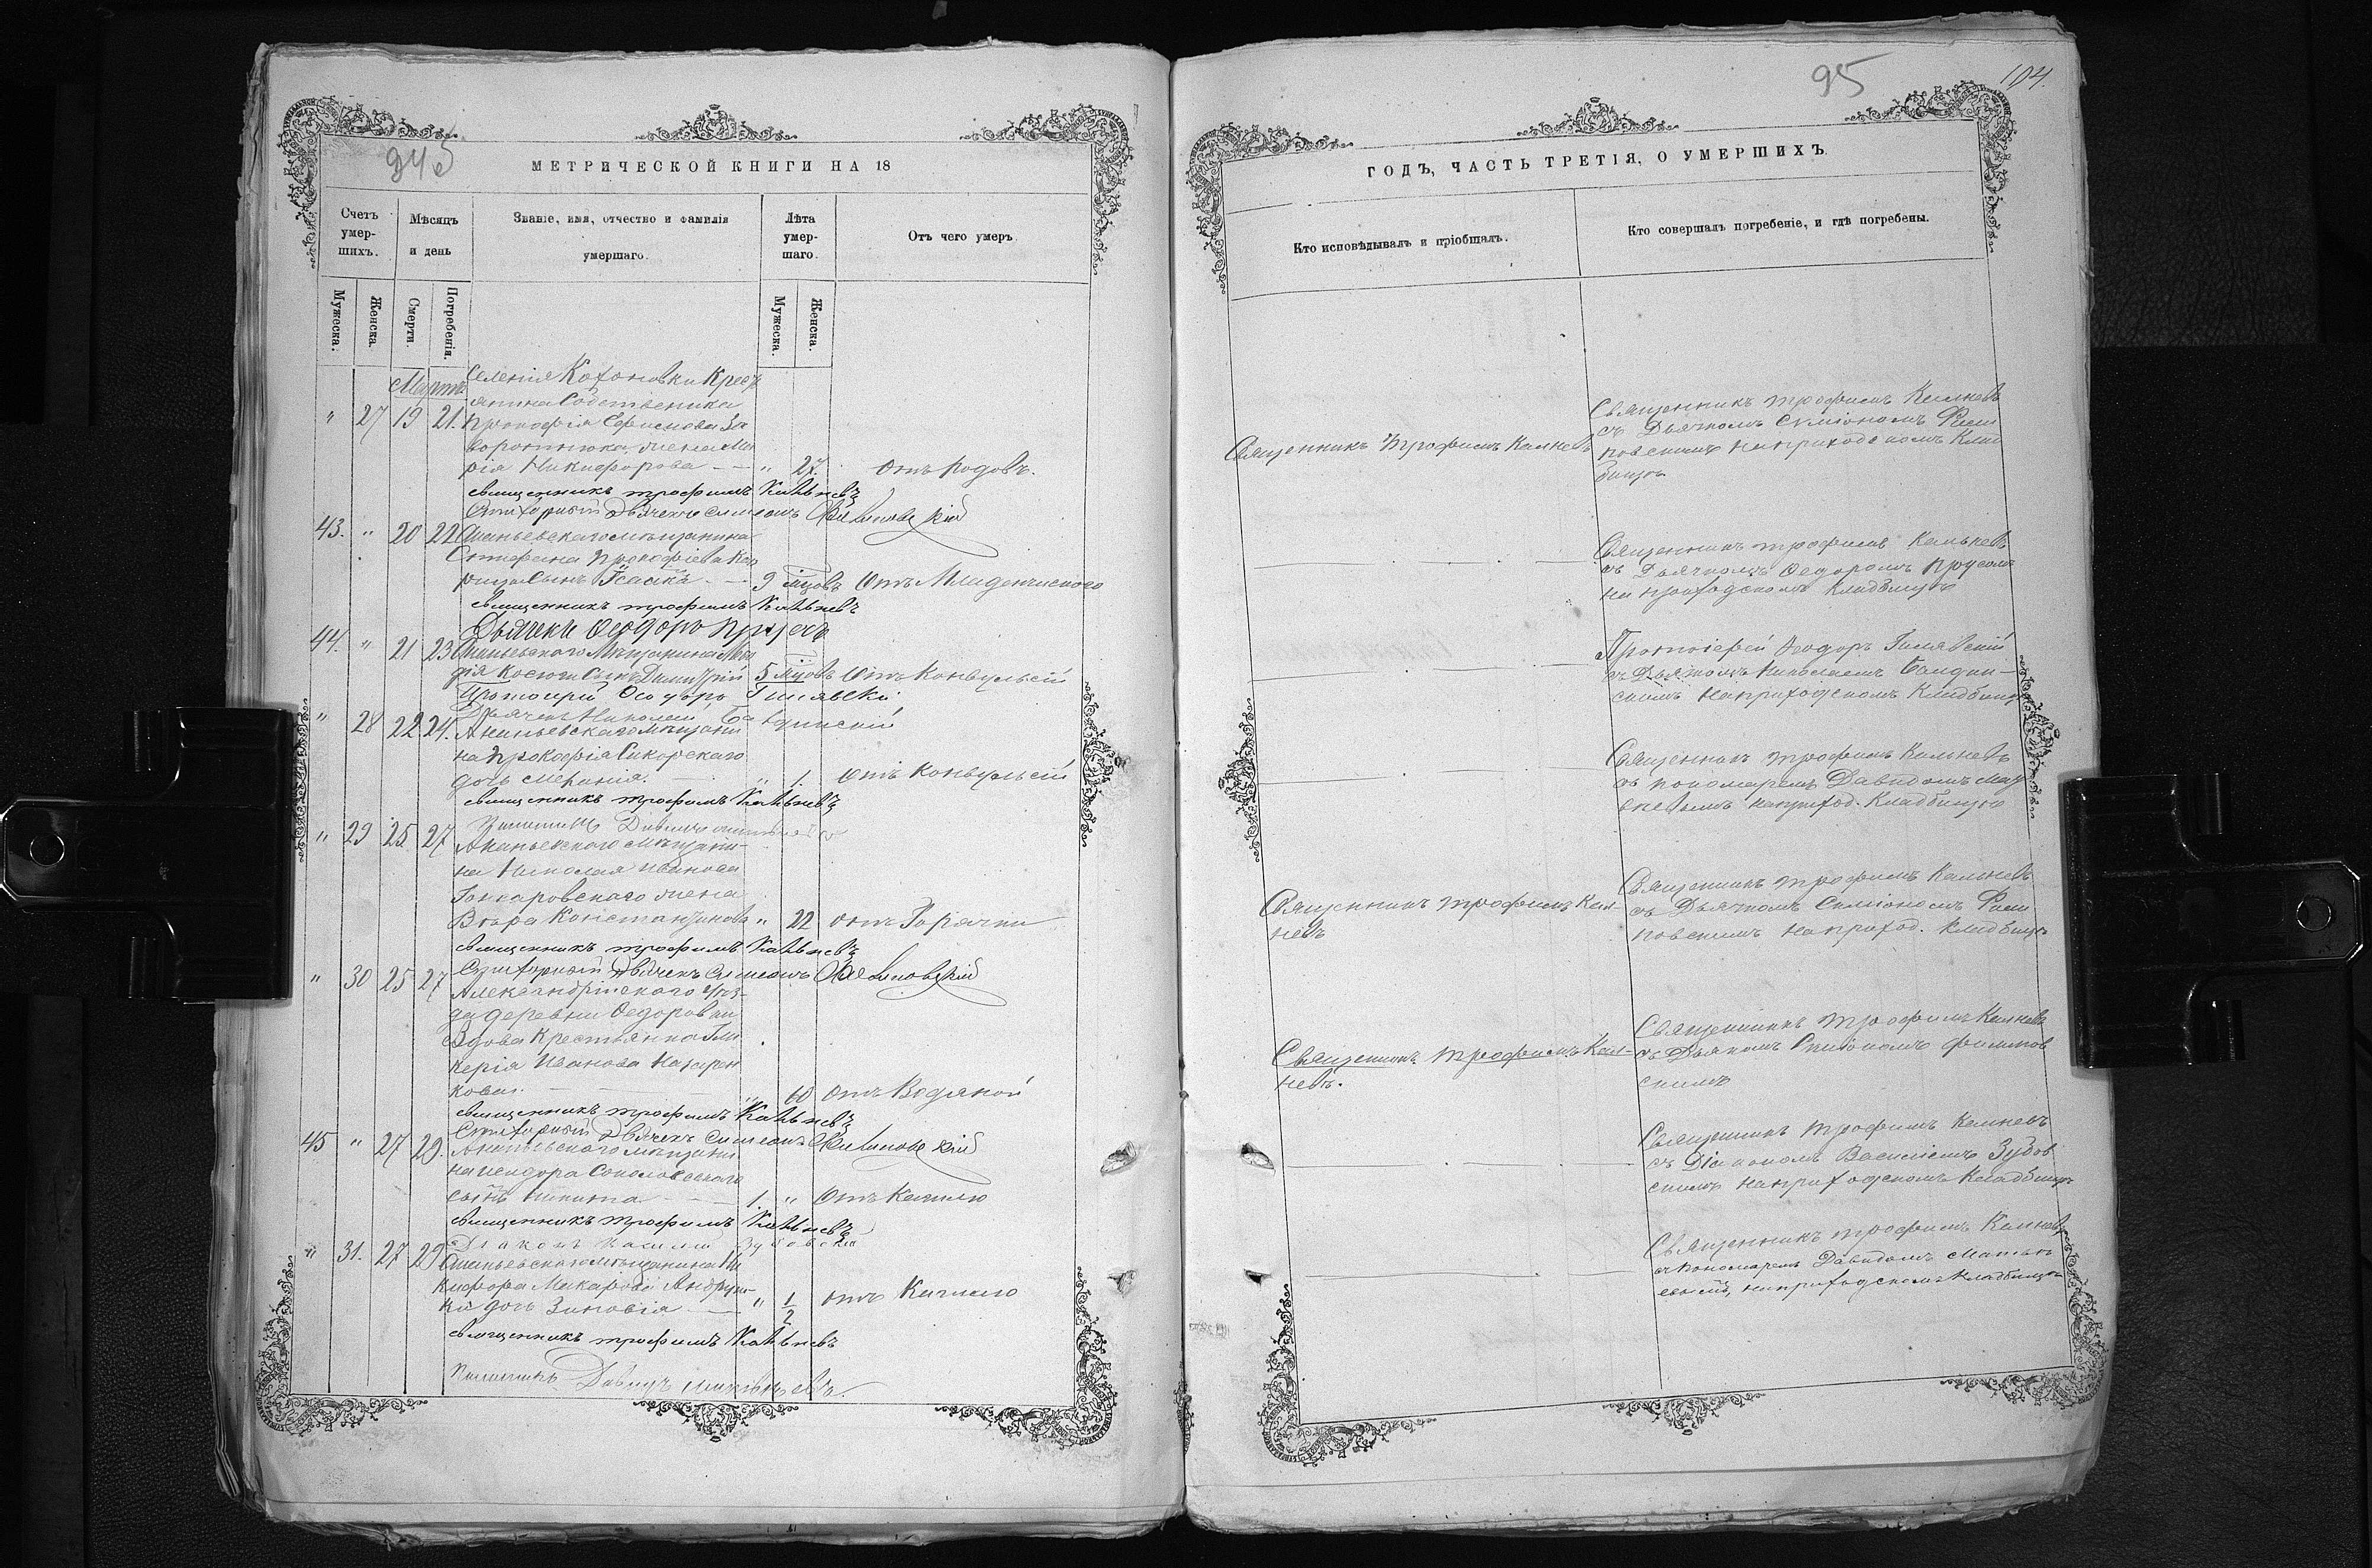 95
104.
МЕТРИЧЕСКОЙ КНИГИ НА 18
Счетъ умер-шихъ.
Мѣсяцъ и день
Званіе, имя, отчество и фамилія умершаго.
Лѣта умер-шаго.
Отъ чего умеръ.
Мужеска.
Женска.
Смерти.
Погребенія.
Мужеска.
Женска.
Мартъ
Селенія Кохановки Крест
янина Собственика
" 27 19 21. Прокофія Ефимова За
воротнюка жена Ма
рія Никифорова - - " 27. отъ родовъ.
священникъ трофимъ Кальневъ
Дьячекъ Симеонъ Филиповскій
43. " 20 22 Ананьевскаго мѣщанина
Стефана Прокофіева
сынъ Ісаакъ - - 9 мѣцовъ Отъ Младенческого
священникъ трофимъ Кальневъ
Дьячекъ Ѳеодоръ
44. " 21 23 Ананьевскаго Мѣщанина
сынъ Димитрій 5 мѣцовъ Отъ Конвульсій
Протоіерей Ѳеодоръ Гилявскій
Дьячекъ Николай
" 28 22. 24. Ананьевскаго мѣщани
на Прокофія Сикорскаго
дочь Меланія. " 1. Отъ Конвульсій
священникъ трофимъ Кальневъ
" 29 25 27 Ананьевского мѣщани-
на Николая Иванова
Гонкаровского жена
Вѣра Константинова " 22 отъ Горячки
священникъ трофимъ Кальневъ
Дьячекъ Симеонъ Филиповскій
" 30 25 27 Александрійского уѣз-
да деревни Ѳедоровки
Вдова Крестьянка Гли
керія Иванова Назарен
кова. " 60 отъ Водяной
священникъ трофимъ Кальневъ
Дьячекъ Симеонъ Филиповскій
45 " 27 29. Ананьевского мѣщани
на Исидора Соколовского
сынъ Никита - - 1. " Отъ Кашлю
священникъ трофимъ Кальневъ
Діаконъ Василій Зубовскій
" 31. 27 29 Ананьевского мѣщанина Ни
кифора Макарова
дочь Зиновія - " 1/2 отъ Кашлю
священникъ трофимъ Кальневъ
Давидъ
ГОДЪ, ЧАСТЬ ТРЕТІЯ, О УМЕРШИХЪ.
Кто исповѣдывалъ и пріобщалъ.
Кто совершалъ погребеніе, и гдѣ погребены.
Священникъ Трофимъ Калневъ
Священникъ трофимъ Калневъ
съ Дьячкомъ Симіономъ Фили
повскимъ на приходскомъ Клад
бищѣ
Священникъ трофимъ Кальневъ
съ Дьячкомъ Ѳеодоромъ
на приходскомъ кладбищѣ
Протоіерей Ѳеодоръ Гилявскій
съ Дьячкомъ Николаемъ
скимъ на приходскомъ Кладбищѣ
Священникъ трофимъ Кальневъ
съ пономаремъ Давидомъ
на приход. Кладбищѣ
Священникъ трофимъ Кал
невъ
Священникъ трофимъ Калневъ
съ Дьячкомъ Симіономъ Фили
повскимъ на приход. кладбищѣ
Священникъ трофимъ Кал-
невъ.
Священникъ трофимъ Калневъ
съ Дьякомъ Симіономъ Филипов
скимъ
Священникъ трофимъ Калневъ
съ Діакономъ Василіемъ Зубов
скимъ на приходскомъ Кладбищѣ
Священникъ трофимъ Калневъ
съ пономаремъ Давидомъ
на приходскомъ Кладбищѣ